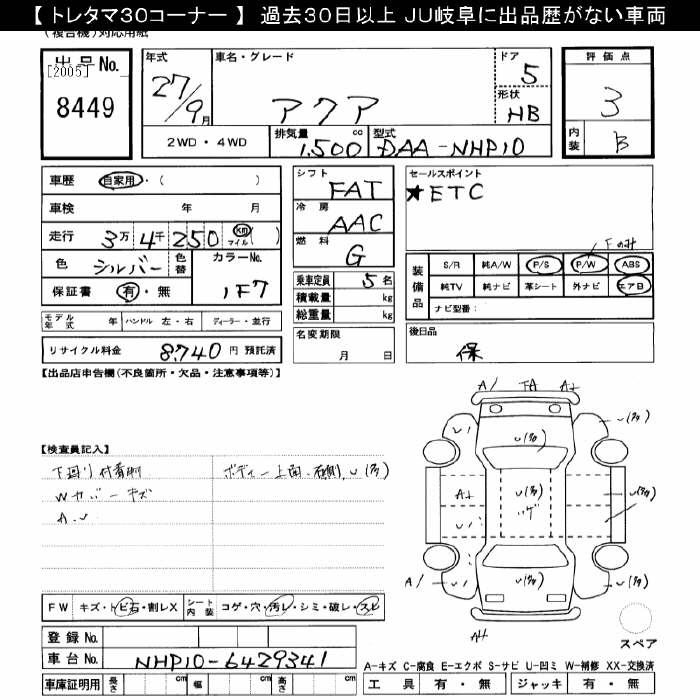 【 トレタマ30コーナー 】 過去30日以上 JU岐阜に出品歴がない車両
(複合機)対応用紙
出品No.
[2005]
8449
年式
27/9月
車名・グレード
アクア
ドア
5
形状
HB
評価点
3
内装
B
2WD・4WD
排気量
1,500 cc
型式
DAA-NHP10
車歴
自家用・( )
車検 年 月
走行 3万4千250 km マイル( )
色 シルバー
色替
カラーNo.
1F7
保証書 有・無
モデル年式 年
ハンドル 左・右
ディーラー・並行
リサイクル料金 8,740円 預託済
シフト
FAT
冷房
AAC
燃料
G
乗車定員 5名
積載量 kg
総重量 kg
名変期限
月 日
セールスポイント
★ETC
Fのみ
装備品
S/R 純A/W P/S P/W ABS
純TV 純ナビ 革シート 外ナビ エアB
ナビ型番:
後日品
保
【出品店申告欄(不良箇所・欠品・注意事項等)】
【検査員記入】
下廻り付着剤
Wカバーキズ
A.U
ボディー上面、右側、U(多)
FW キズ・トビ石・割レX
シート内装 コゲ・穴・汚レ・シミ・破レ・スレ
登録No.
車台No. NHP10-6429341
車庫証明用 長さ cm 幅 cm 高さ cm
A/ TA A+
U(多)
U(多)
A+
U(多)
U(多)
U(多)
A/
スペア
A-キズ C-腐食 E-エクボ S-サビ U-凹ミ W-補修 XX-交換済
工具 有・無 ジャッキ 有・無